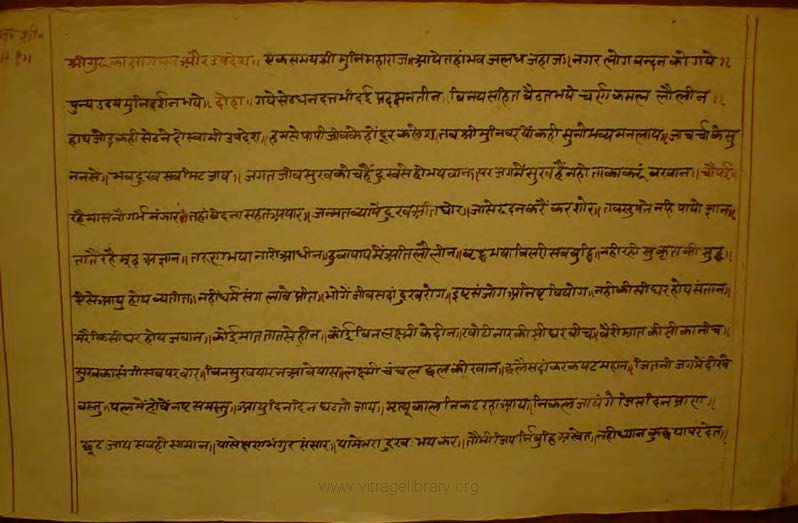 श्रीगुरु का आगमन और उपदेश॥ एक समय श्री मुनि महाराज॥ आये तहां भव जलध जहाज॥ नगर लोग वन्दन को गये॥
पुन्य उदय मुनि दर्शन भये॥ दोहा॥ गये सेठ धनदत्त भी दई प्रदक्षन तीन॥ विनय सहित बैठत भये चर्ण कमल लौलीन॥
हाथ जोड़ कही सेठ ने दो स्वामी उपदेश॥ हम से पापी जीव के हों दूर कलेश॥ तब श्री मुनिवर यों कही सुनो भव्य मन लाय॥ जा चर्चा के सु
नन से॥ भव दुख सब मिट जाय॥ जगत जीव सुख को चहैं दुख से हो भयवान॥ पर जग में सुख है नही ताका करूं बखान॥ चौपई
रहै मास नौ गर्भ मंजार॥ तहां वेदना सहत अपार॥ जन्मत व्यापै दुख अति घोर॥ जासे रुदन करै कर शोर॥ नही पायो ज्ञान॥
तातैं रहै मूढ़ अज्ञान॥ तरुण भया नारी आधीन॥ पाप में अति लौलीन॥ वृद्ध भया विसरी सब बुद्धि॥ नही रही सुकृत की सुद्ध॥
ऐसे आयु होय व्यतीत॥ नही धर्म संग लावे प्रीत॥ भोगै जीव सदां दुख रोग॥ इष्ट संजोग अनिष्ट वियोग॥ नही किसी घर होय संतान॥
मरै किसी घर होय जवान॥ कोई मात तात से हीन॥ कोई विन लक्ष्मी के दीन॥ खोटी नार किसी घर बीच॥ वैरी भ्रात किसी का नीच॥
सुख का संगी सब परवार॥ विन सुख यार न आवे पास॥ लक्ष्मी चंचल छल की खान॥ छलै सदां कर कपट महान॥ जितनी जग में दीखे
वस्तु॥ पल में होवें नष्ट समस्तु॥ आयु दिन दिन घटती जाय॥ मृत्यू काल निकट रहा आय॥ निकल जायंगे जिस दिन प्राण॥
छूट जाय सबही सामान॥ यासे क्षणभंगुर संसार॥ या में भरा दुख भयकार॥ तौभी निर्बुद्धि अचेत॥ नही ध्यान कुछ या पर देत॥
www.vitragelibrary.org